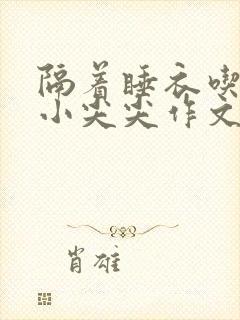 隔着睡衣喫
小尖尖作文
肖雄